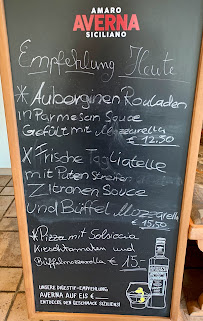 AMARO
AVERNA
SICILIANO
Empfehlung Heute
* Auberginen Rouladen
in Parmesan Sauce
Gefüllt mit Mozzarella
€ 12,50
* Frische Tagliatelle
mit Puten Streifen
Zitronen Sauce
und Büffel Mozzarella
€ 15,50
* Pizza mit Salsiccia
Kirschtomaten und
Büffelmozzarella € 15,-
UNSERE DIGESTIF-EMPFEHLUNG
AVERNA AUF EIS €
ENTDECKEN. DER GESCHMACK SIZILIENS!